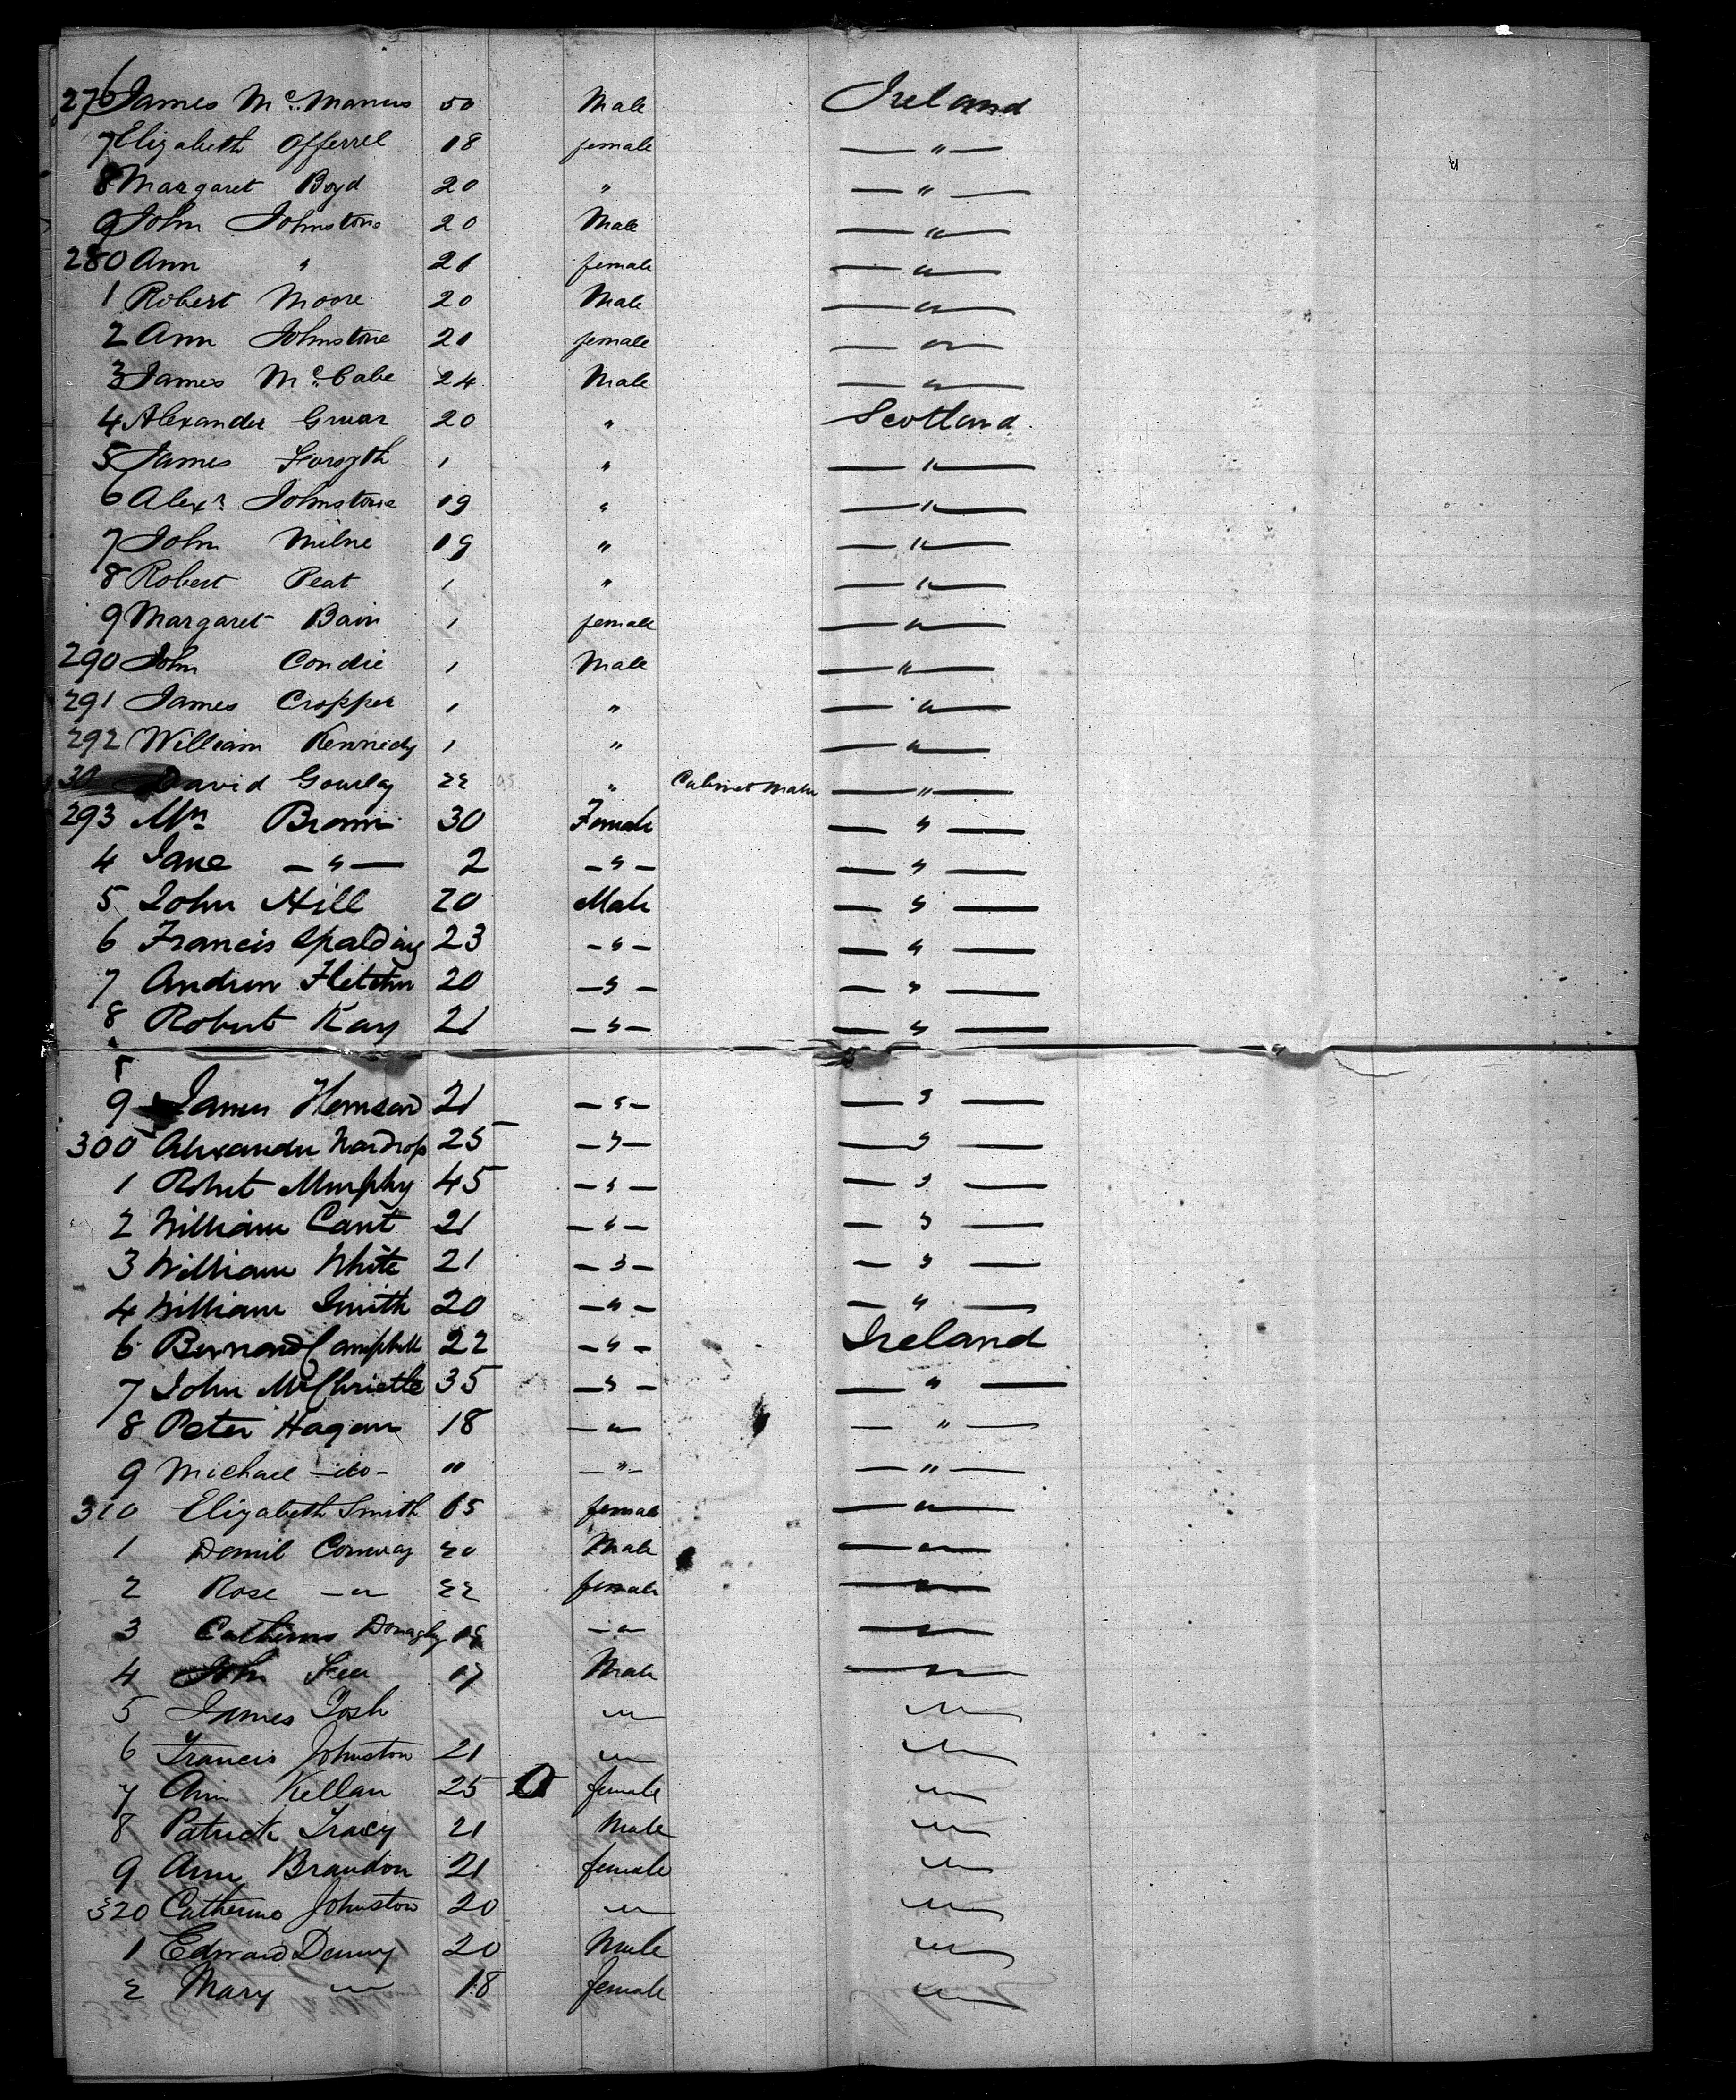 276 James McManus 50 Male Ireland
7 Elizabeth Offerrel 18 female — " —
8 Margaret Boyd 20 " — " —
9 John Johnstone 20 Male — " —
280 Ann " 21 female — " —
1 Robert Moore 20 Male — " —
2 Ann Johnstone 21 female — " —
3 James McCabe 24 Male — " —
4 Alexander Gruar 20 " Scotland
5 James Forsyth 1 " — " —
6 Alexr Johnstone 19 " — " —
7 John Milne 19 " — " —
8 Robert Peat 1 " — " —
9 Margaret Bain 1 female — " —
290 John Condie 1 Male — " —
291 James Cropper 1 " — " —
292 William Kennedy 1 " — " —
30 David Gourlay 22 " Cabinet Maker — " —
293 Mrs Brown 30 Female — " —
4 Jane — " — 2 — " — — " —
5 John Hill 20 Male — " —
6 Francis Spalding 23 — " — — " —
7 Andrew Fletcher 20 — " — — " —
8 Robert Kay 21 — " — — " —
9 James 21 — " — — " —
300 Alexander Wardrop 25 — " — — " —
1 Robert Murphy 45 — " — — " —
2 William Cant 21 — " — — " —
3 William White 21 — " — — " —
4 William Smith 20 — " — — " —
6 Bernard Campbell 22 — " — Ireland
7 John McChristle 35 — " — — " —
8 Peter Hagan 18 — " — — " —
9 Michael —do— " — " — — " —
310 Elizabeth Smith female — " —
1 Conway 20 Male — " —
2 Rose — " 22 female — " —
3 Donaghy — " — " —
4 John 17 Male — " —
5 James Tosh " "
6 Francis Johnston 21 " "
7 Ann Kellan 25 female "
8 Patrick Tracy 21 Male "
9 Ann Brandon 21 female "
320 Catherine Johnston 20 " "
1 Edward Denny 20 Male "
2 Mary " 18 female "